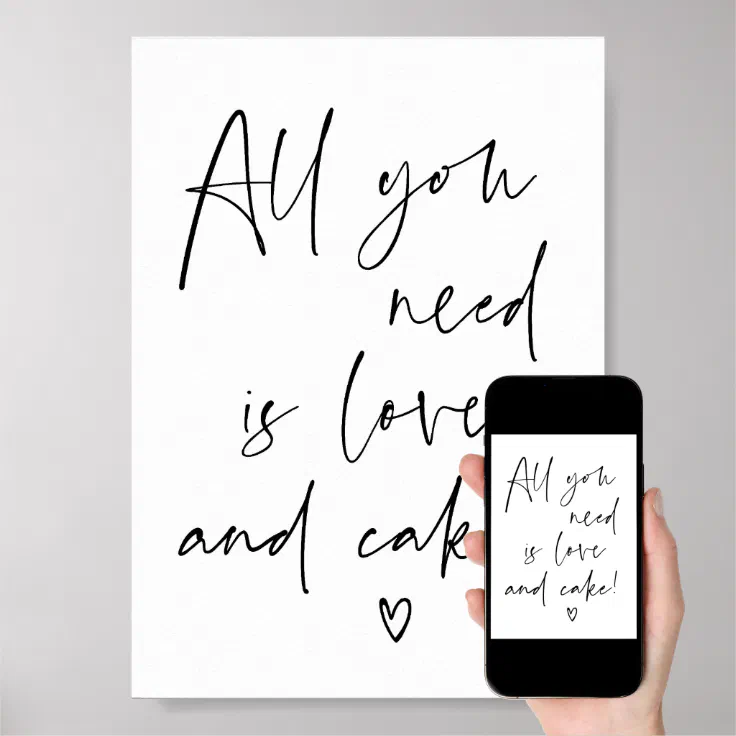 All you
need
is love
and cak
All you
need
is love
and cake!